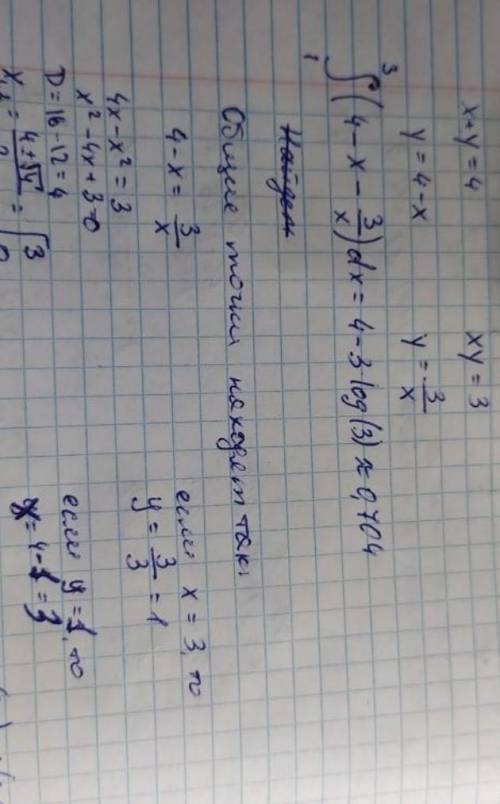 x+y=4 xy=3
y=4-x y=3/x
∫₁³(4-x-3/x)dx=4-3log(3)≈0,704
Найдем
Общие точки находят так:
4-x=3/x
4x-x²=3
x²-4x+3=0
D=16-12=4
если x=3, то
y=3/3=1
если y=1, то
x=4-1=3